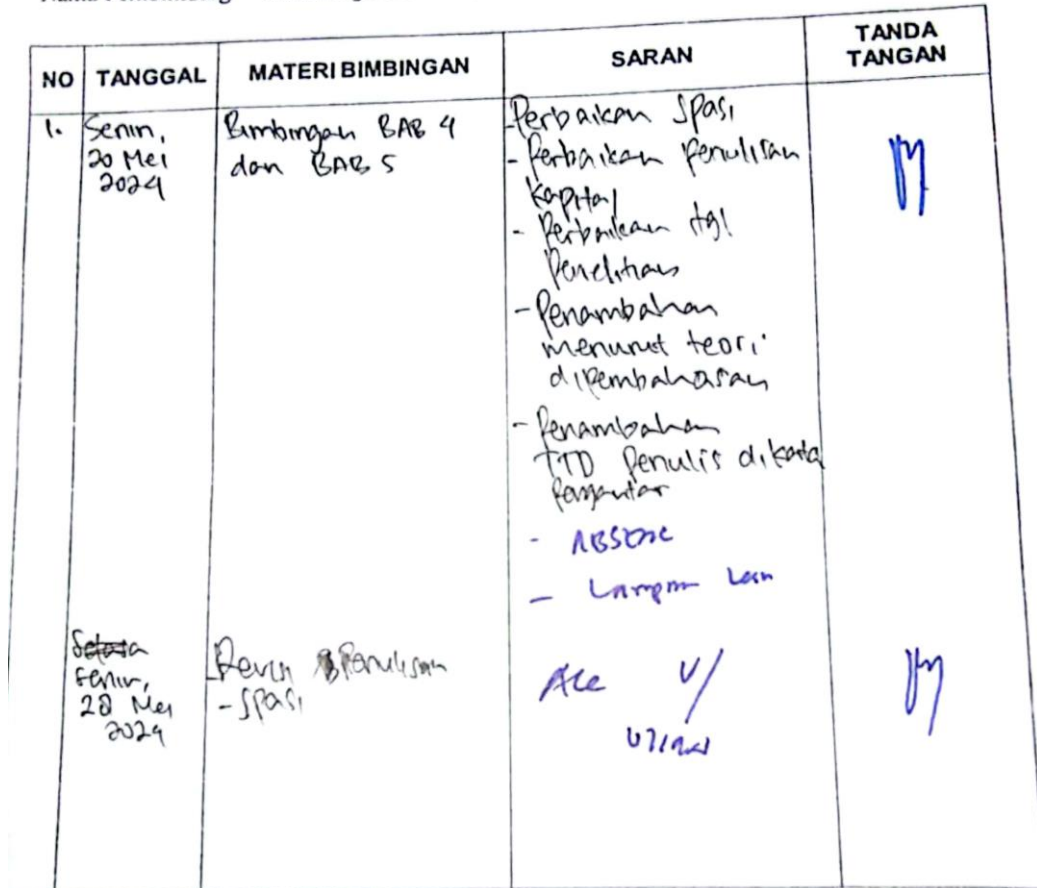 NO TANGGAL MATERI BIMBINGAN SARAN TANDA TANGAN
1.
Senin,
20 Mei
2024
Bimbingan BAB 4
dan BAB 5
- Perbaikan Spasi
- Perbaikan Penulisan
Kapital
- Perbaikan tgl
Penelitian
- Penambahan
menurut teori
dipembahasan
- Penambahan
TTD Penulis dikata
Pengantar
-
- Lampiran
Selasa
Senin,
28 Mei
2024
- Revisi Penulisan
- Spasi
Acc U/